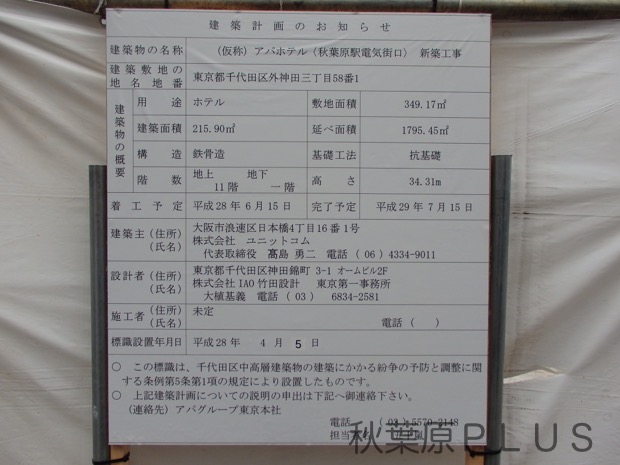 建築計画のお知らせ
建築物の名称 (仮称) アパホテル (秋葉原駅電気街口) 新築工事
建築敷地の地名地番 東京都千代田区外神田三丁目58番1
建築物の概要
用途 ホテル 敷地面積 349.17㎡
建築面積 215.90㎡ 延べ面積 1795.45㎡
構造 鉄骨造 基礎工法 杭基礎
階数 地上 11階 地下 一階 高さ 34.31m
着工予定 平成28年6月15日 完了予定 平成29年7月15日
建築主 (住所) 大阪市浪速区日本橋4丁目16番1号
(氏名) 株式会社 ユニットコム
代表取締役 髙島 勇二 電話 (06) 4334-9011
設計者 (住所) 東京都千代田区神田錦町 3-1 オームビル2F
(氏名) 株式会社 IAO竹田設計 東京第一事務所
大植基義 電話 (03) 6834-2581
施工者 (住所) 未定
(氏名) 電話 ( )
標識設置年月日 平成28年 4月 5日
○ この標識は、千代田区中高層建築物の建築にかかる紛争の予防と調整に関
する条例第5条第1項の規定により設置したものです。
○ 上記建築計画についての説明の申出は下記へ御連絡下さい。
(連絡先) アパグループ東京本社
電話 (03) 5570-2148
担当者名
秋葉原PLUS